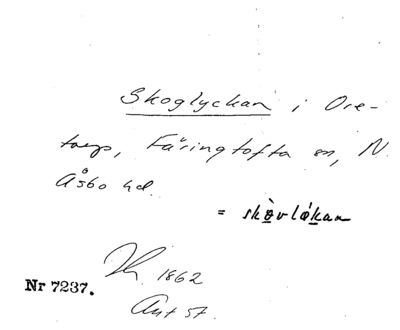 Skoglyckan i Ore-
torp, Färingtofta sn, N.
Åsbo hd.
= skòvlǽkan
1862
Nr 7237.
Ant 57.